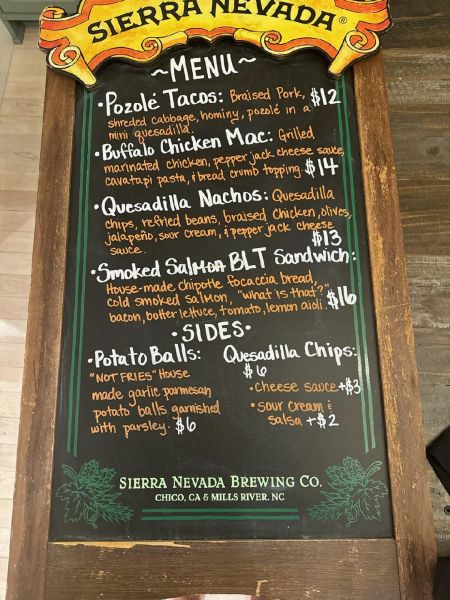 SIERRA NEVADA®
~MENU~
•Pozolé Tacos: Braised Pork, $12
shredded cabbage, hominy, pozolé in a
mini quesadilla.
•Buffalo Chicken Mac: Grilled
marinated chicken, pepper jack cheese sauce,
cavatapi pasta, & bread crumb topping. $14
•Quesadilla Nachos: Quesadilla
chips, refried beans, braised chicken, olives,
jalapeño, sour cream, & pepper jack cheese
sauce. $13
•Smoked Salmon BLT Sandwich:
House-made chipotle focaccia bread,
cold smoked salmon, "what is that?"
bacon, butter lettuce, tomato, lemon aioli. $16
•SIDES•
•Potato Balls:
"NOT FRIES" House
made garlic parmesan
potato balls garnished
with parsley. $6
Quesadilla Chips:
$6
•cheese sauce +$3
•sour cream &
salsa +$2
SIERRA NEVADA BREWING CO.
CHICO, CA & MILLS RIVER, NC